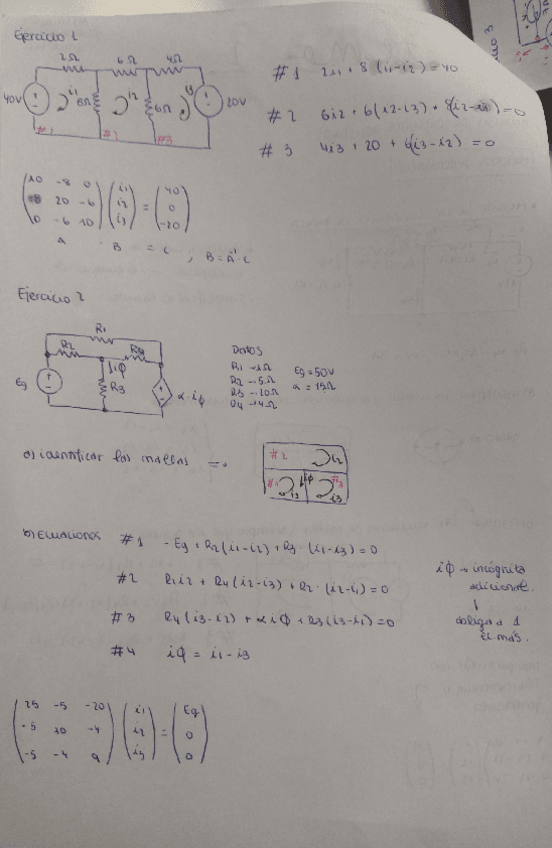 Ejercicio 1
2Ω 6Ω 4Ω
40V i1 8Ω i2 6Ω i3 20V
#1 #2 #3
#1 2i1 + 8(i1-i2) = 40
#2 6i2 + 6(i2-i3) + 8(i2-i1) = 0
#3 4i3 + 20 + 6(i3-i2) = 0
10 -8 0 i1 40
-8 20 -6 i2 = 0
0 -6 10 i3 -20
A · B = C , B = A⁻¹·C
Ejercicio 2
R1
R2 R4
Eg iϕ R3 α·iϕ
Datos
R1 → 1Ω Eg = 50V
R2 → 5Ω a = 15Ω
R3 → 20Ω
R4 → 4Ω
a) identificar las mallas =>
#2 i2
#1 i1 iϕ #3 i3
b) Ecuaciones #1 - Eg + R2(i1-i2) + R3·(i1-i3) = 0
#2 R1i2 + R4(i2-i3) + R2·(i2-i1) = 0
#3 R4(i3-i2) + αiϕ + R3(i3-i1) = 0
#4 iϕ = i1-i3
iϕ → incógnita
adicional.
↓
obliga a 1
ec más.
25 -5 -20 i1 Eg
-5 10 -4 i2 = 0
-5 -4 9 i3 0